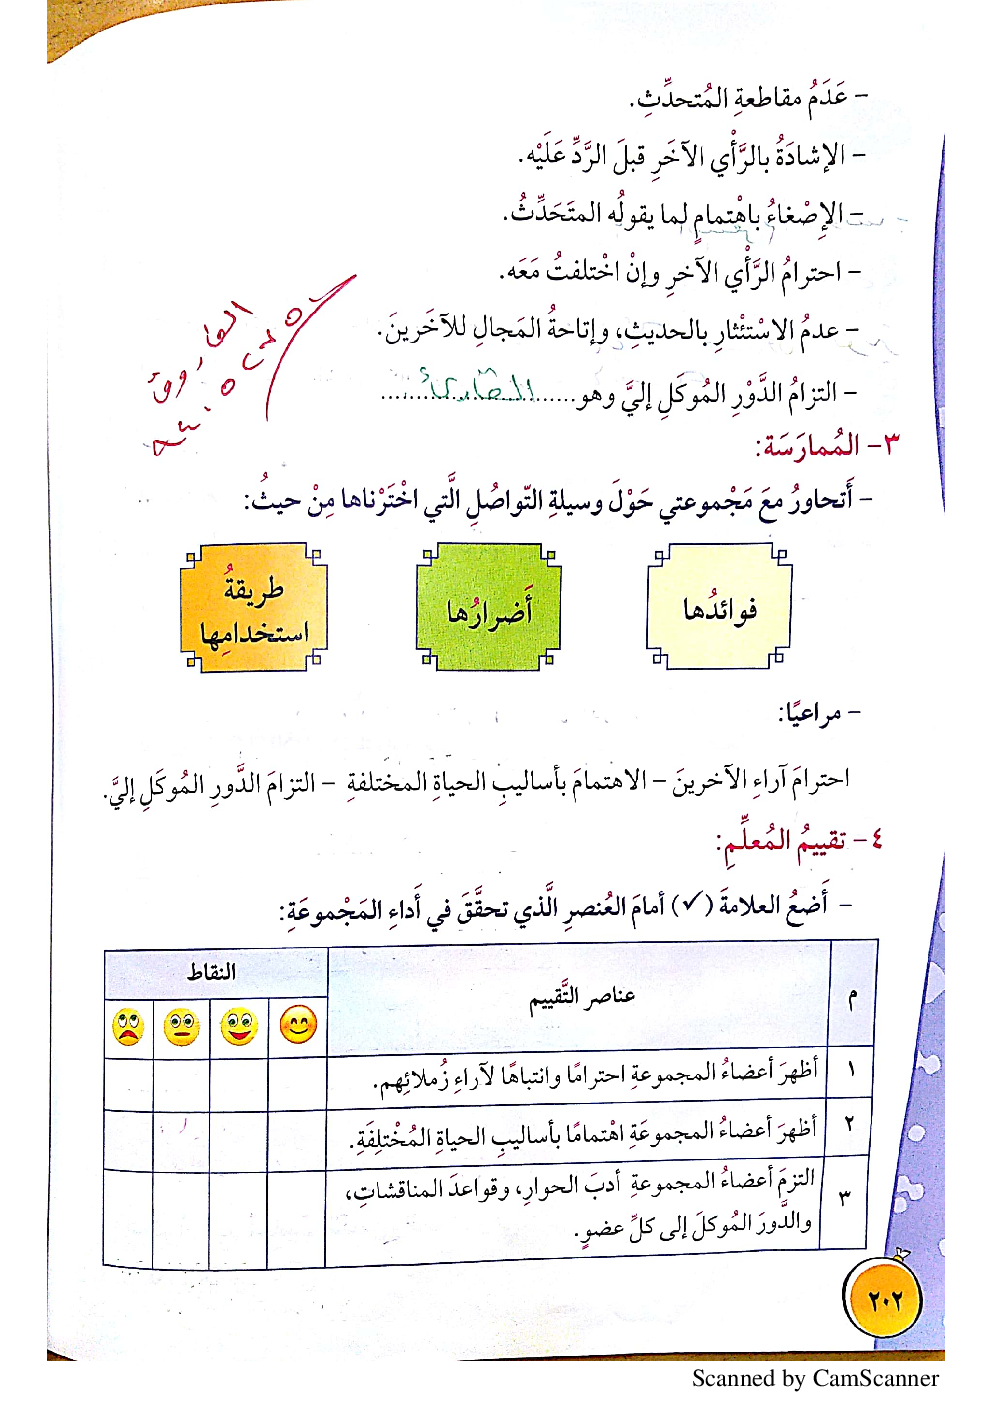 – عَدَمُ مقاطعةِ المُتحدِّثِ.
– الإشادَةُ بالرَّأْي الآخَرِ قبلَ الرَّدِّ عَلَيْه.
– الإِصْغاءُ باهْتمامٍ لما يقولُه المتَحَدِّثُ.
– احترامُ الرَّأْي الآخرِ وإنْ اخْتلفتُ مَعَه.
– عدمُ الاسْتئْثارِ بالحديثِ، وإتاحةُ المَجالِ للآخَرينَ.
– التزامُ الدَّوْرِ المُوكَلِ إليَّ وهو......القارئُ......
٣– المُمارَسَة:
– أَتحاورُ معَ مَجْموعتي حَوْلَ وسيلةِ التّواصُلِ الَّتي اخْتَرْناها مِنْ حيثُ:
فوائدُها
أَضرارُها
طريقةُ
استخدامِها
– مراعيًا:
احترامَ آراءِ الآخرينَ – الاهتمامَ بأساليبِ الحياةِ المختلفةِ – التزامَ الدَّورِ المُوكَلِ إليَّ.
٤– تقييمُ المُعلِّمِ:
– أَضعُ العلامةَ (✓) أمامَ العُنصرِ الَّذي تحقَّقَ في أَداءِ المَجْموعَةِ:
م
عناصر التَّقييم
النقاط
١
أظهرَ أعضاءُ المجموعةِ احترامًا وانتباهًا لآراءِ زُملائِهم.
٢
أظهرَ أعضاءُ المجموعَةِ اهْتمامًا بأساليبِ الحياةِ المُخْتلِفَةِ.
٣
التزمَ أعضاءُ المجموعةِ أدبَ الحوارِ، وقواعدَ المناقشاتِ،
والدَّورَ المُوكلَ إلى كلِّ عضوٍ.
٢٠٢
Scanned by CamScanner